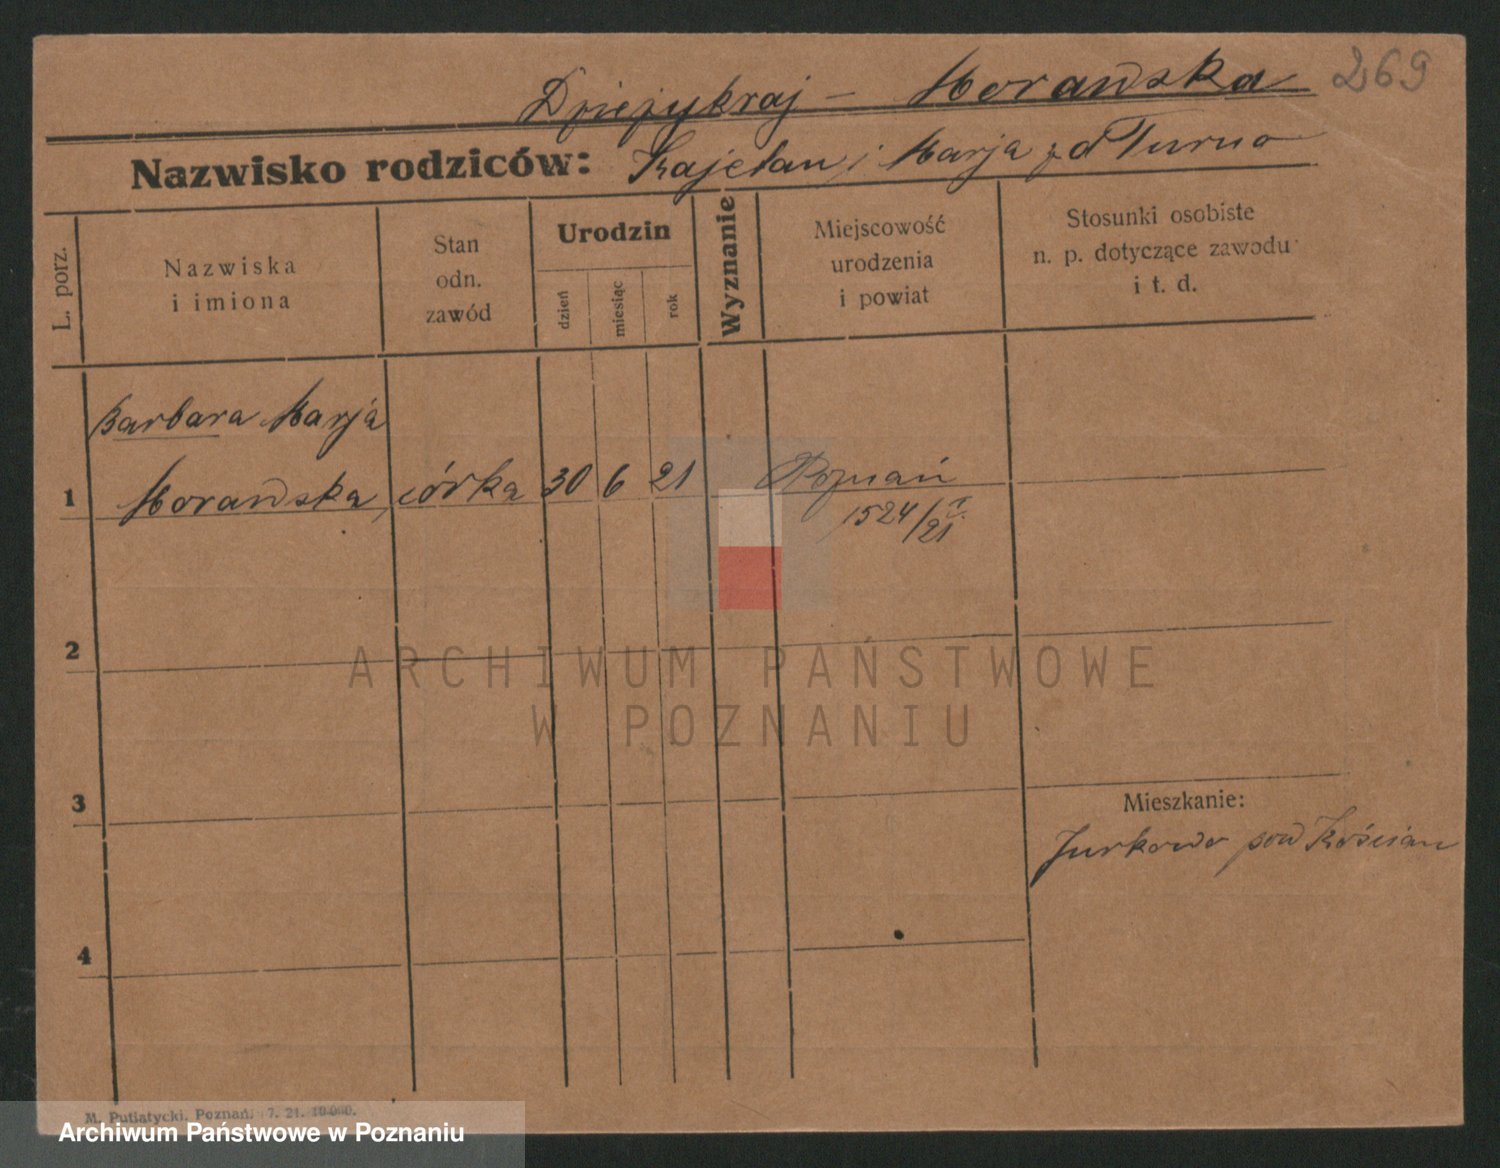 269
Dzierżykraj – Morawska
Nazwisko rodziców: Kajetan i Marja z d Turno
L. porz.
Nazwiska
i imiona
Stan
odn.
zawód
Urodzin
dzień
miesiąc
rok
Wyznanie
Miejscowość
urodzenia
i powiat
Stosunki osobiste
n. p. dotyczące zawodu
i t. d.
Barbara Marja
1 Morawska, córka 30 6 21 Poznań
1524/21
2
ARCHIWUM PAŃSTWOWE
W POZNANIU
3
Mieszkanie:
Jurkowo pow Kościan
4
M. Putiatycki, Poznań, 7. 21. 10000.
Archiwum Państwowe w Poznaniu